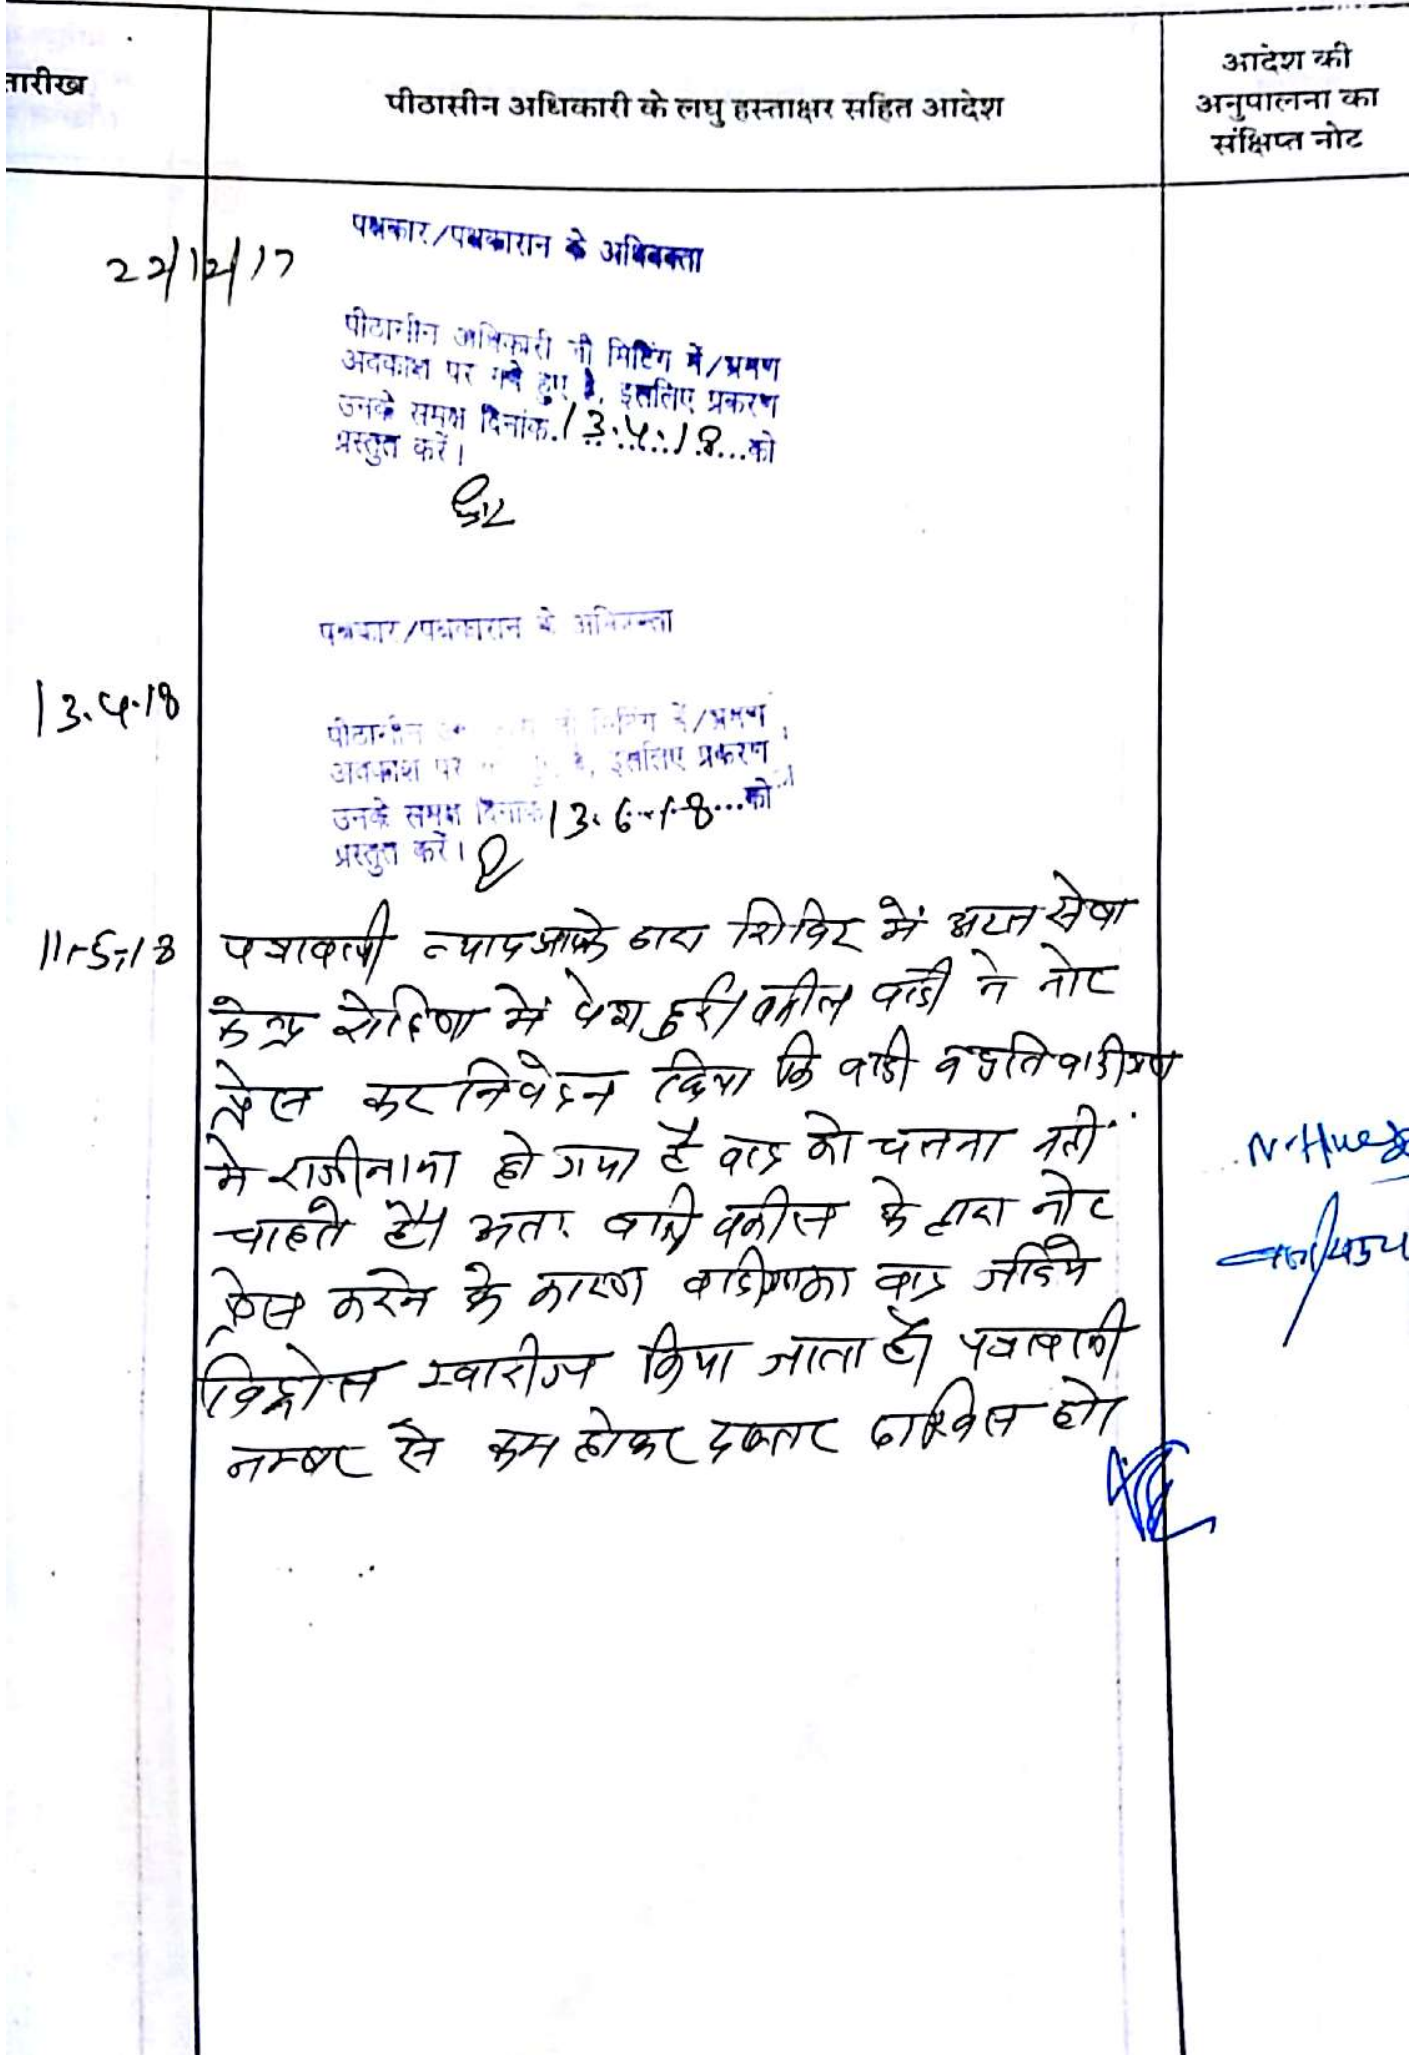 तारीख
पीठासीन अधिकारी के लघु हस्ताक्षर सहित आदेश
आदेश की
अनुपालना का
संक्षिप्त नोट
22/12/17
पक्षकार/पक्षकारान के अधिवक्ता
पीठासीन अधिकारी जी मिटिंग में/भ्रमण
अवकाश पर गये हुए है, इसलिए प्रकरण
उनके समक्ष दिनांक.13.4.18...को
प्रस्तुत करें।
पक्षकार/पक्षकारान के अधिवक्ता
13.4.18
पीठासीन मिटिंग में/भ्रमण
अवकाश पर है, इसलिए प्रकरण
उनके समक्ष दिनांक 13.6.18...को
प्रस्तुत करें।
11-5-18
पत्रावली न्याय आपके द्वारा शिविर में अटल सेवा
केन्द्र में पेश हुई। वकील वादी ने नोट
प्रेस कर निवेदन किया कि वादी व प्रतिवादीगण
मे राजीनामा हो गया है वाद को चलना नहीं
चाहते है। अतः वादी वकील के द्वारा नोट
प्रेस करने के कारण वादीगण का वाद
खारीज किया जाता है। पत्रावली
नम्बर से कम होकर दफ्तर दाखिल हो।